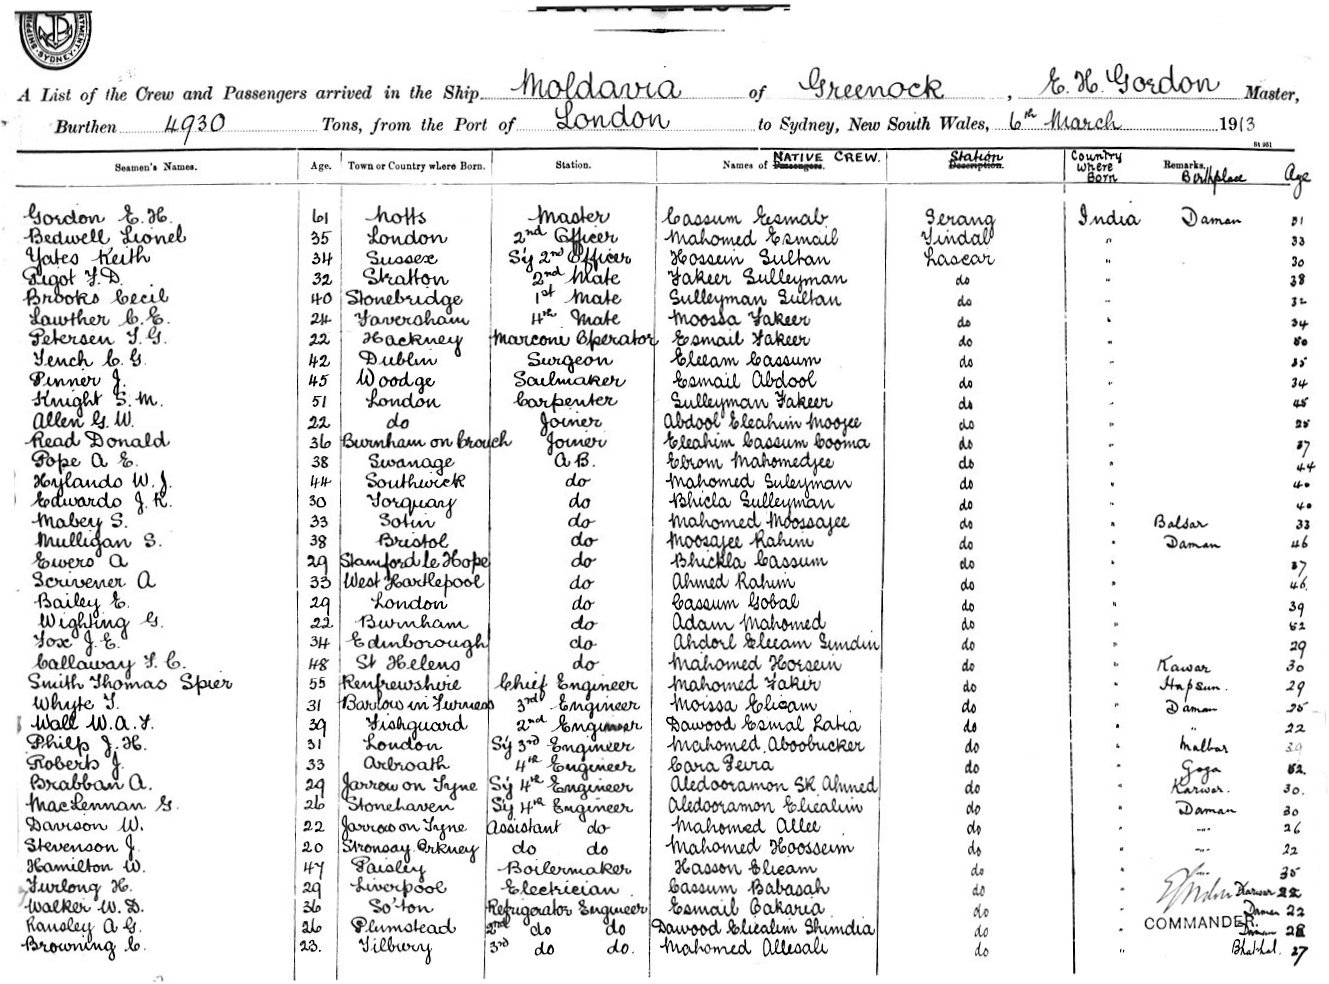 SYDNEY
A List of the Crew and Passengers arrived in the Ship Moldavia of Greenock, E. H. Gordon Master,
Burthen 4930 Tons, from the Port of London to Sydney, New South Wales, 6th March 1913
Seamen's Names. Age. Town or Country where Born. Station. Names of Passengers. NATIVE CREW. Station Description. Country Where Born Remarks. Birthplace Age
Gordon E. H. 61 Notts Master Cassum Esmab Serang India Daman 31
Bedwell Lionel 35 London 2nd Officer Mahomed Esmail Tindal " 33
Yates Keith 34 Sussex S'y 2nd Officer Hossein Sultan Lascar " 30
Pigot F. D. 32 Stratton 2nd Mate Fakeer Sulleyman do " 38
Brooks Cecil 40 Stonebridge 1st Mate Sulleyman Sultan do " 32
Lawther C. E. 24 Faversham 4th Mate Moossa Fakeer do " 34
Petersen T. G. 22 Hackney Marconi Operator Esmail Fakeer do " 50
Tench C. G. 42 Dublin Surgeon Eleeam Cassum do " 35
Pinner J. 45 Woodge Sailmaker Esmail Abdool do " 34
Knight S. M. 51 London Carpenter Sulleyman Fakeer do " 45
Allen G. W. 22 do Joiner Abdool Eleahim Moojee do " 25
Read Donald 36 Burnham on Crouch Joiner Eleahim Cassum Cooma do " 37
Pope A. E. 38 Swanage A.B. Ebrom Mahomedjee do " 44
Hylands W. J. 44 Southwick do Mahomed Suleyman do " 40
Edwards J. R. 30 Torquay do Bhicla Sulleyman do " 40
Mabey S. 33 Soton do Mahomed Moossajee do " Balsar 33
Mulligan S. 38 Bristol do Moosajee Rahim do " Daman 46
Ewers A 29 Stamford le Hope do Bhickla Cassum do " 37
Scrivener A 33 West Hartlepool do Ahmed Rahim do " 46
Bailey E. 29 London do Cassum Gobal do " 39
Wighting G. 22 Burnham do Adam Mahomed do " 52
Fox J. E. 34 Edinborough do Ahdorl Eleeam Simdin do " 29
Callaway F. C. 48 St Helens do Mahomed Horsein do " Kawar 30
Smith Thomas Spier 55 Renfrewshire Chief Engineer Mahomed Fakir do " Hapsun. 29
Whyte T. 31 Barlow in Furness 3rd Engineer Moissa Elieam do " Daman 25
Wall W. A. F. 39 Fishguard 2nd Engineer Dawood Esmal Latia do " " 22
Philp J. H. 31 London S'y 3rd Engineer Mahomed Aboobucker do " Malbar 39
Roberts J. 33 Arbroath 4th Engineer Cara Peira do " Goga 52
Brabban A. 29 Jarrow on Tyne S'y 4th Engineer Aledooramon SK Ahmed do " Karwar. 30
MacLennan G. 26 Stonehaven S'y 4th Engineer Aledooramon Eliealim do " Daman 30
Davison W. 22 Jarrow on Tyne Assistant do Mahomed Allee do " " 26
Stevenson J. 20 Stronsay Orkney do do Mahomed Hoosseim do " " 22
Hamilton W. 47 Paisley Boilermaker Hasson Elieam do " " 35
Furlong H. 29 Liverpool Electrician Cassum Babasah do " Karwar 22
Walker W. D. 36 So'ton Refrigerator Engineer Esmail Cakaria do Daman 22
Ransley A G. 26 Plumstead 2nd do do Dawood Eliealim Shimdia do COMMANDER. Daman 28
Browning C. 23. Tilbury 3rd do do. Mahomed Allesali do " Bhatkal. 27